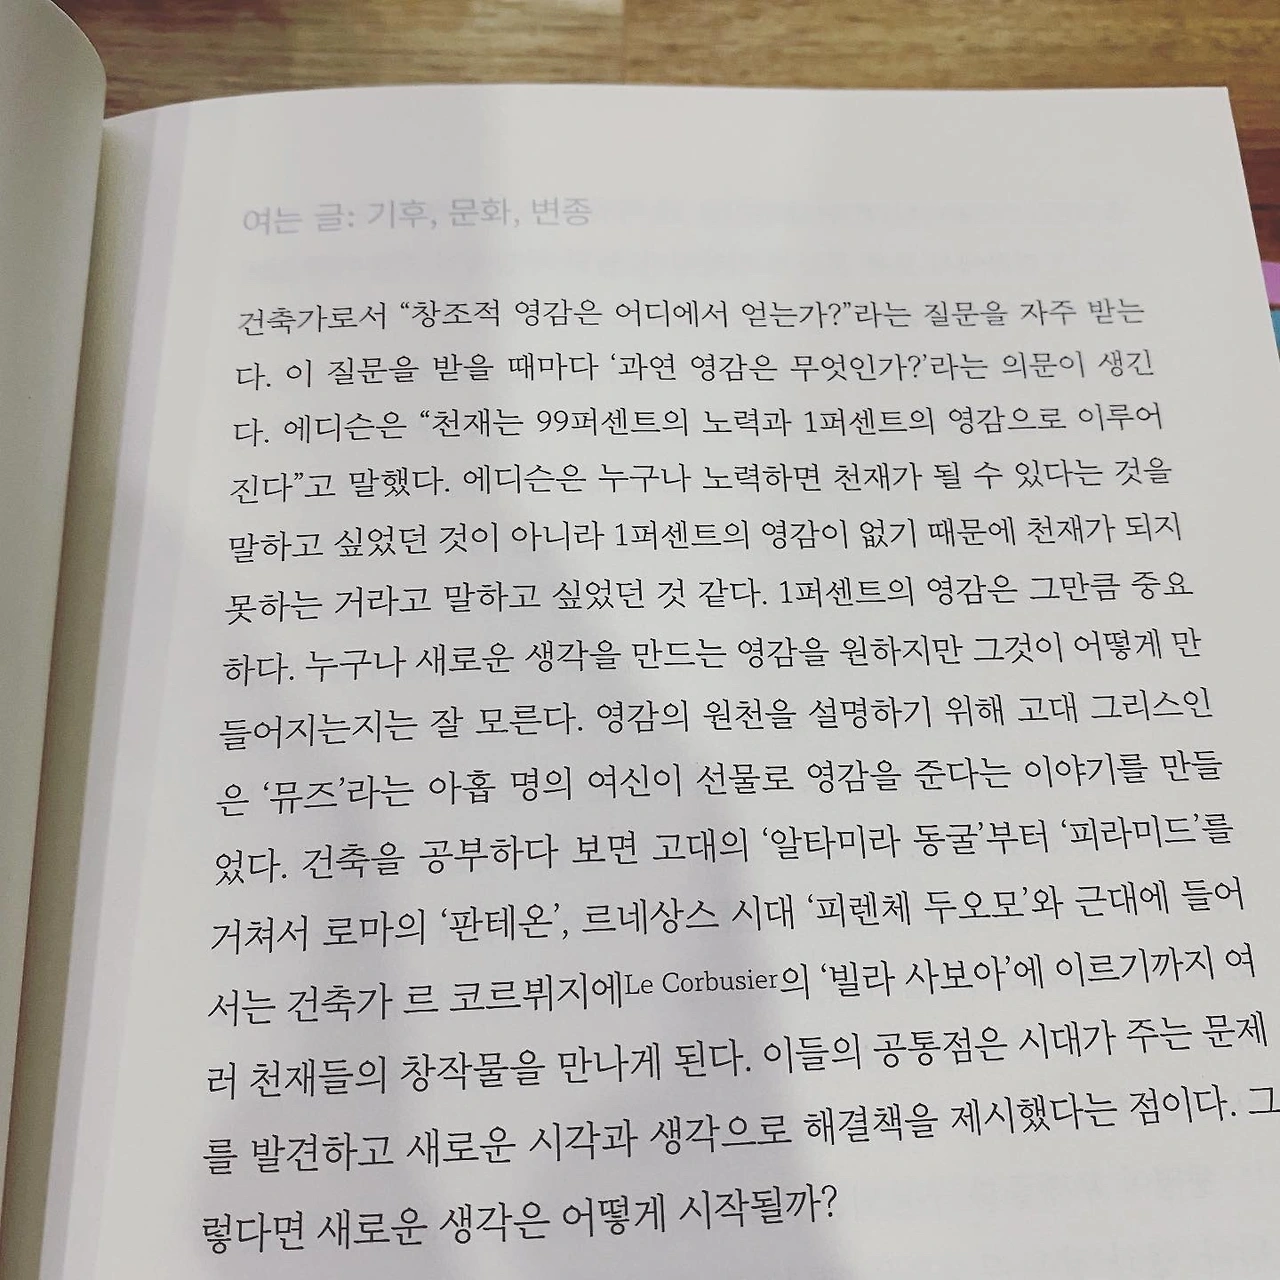 여는 글: 기후, 문화, 변종
건축가로서 “창조적 영감은 어디에서 얻는가?”라는 질문을 자주 받는
다. 이 질문을 받을 때마다 ‘과연 영감은 무엇인가?’라는 의문이 생긴
다. 에디슨은 “천재는 99퍼센트의 노력과 1퍼센트의 영감으로 이루어
진다”고 말했다. 에디슨은 누구나 노력하면 천재가 될 수 있다는 것을
말하고 싶었던 것이 아니라 1퍼센트의 영감이 없기 때문에 천재가 되지
못하는 거라고 말하고 싶었던 것 같다. 1퍼센트의 영감은 그만큼 중요
하다. 누구나 새로운 생각을 만드는 영감을 원하지만 그것이 어떻게 만
들어지는지는 잘 모른다. 영감의 원천을 설명하기 위해 고대 그리스인
은 ‘뮤즈’라는 아홉 명의 여신이 선물로 영감을 준다는 이야기를 만들
었다. 건축을 공부하다 보면 고대의 ‘알타미라 동굴’부터 ‘피라미드’를
거쳐서 로마의 ‘판테온’, 르네상스 시대 ‘피렌체 두오모’와 근대에 들어
서는 건축가 르 코르뷔지에Le Corbusier의 ‘빌라 사보아’에 이르기까지 여
러 천재들의 창작물을 만나게 된다. 이들의 공통점은 시대가 주는 문제
를 발견하고 새로운 시각과 생각으로 해결책을 제시했다는 점이다. 그
렇다면 새로운 생각은 어떻게 시작될까?